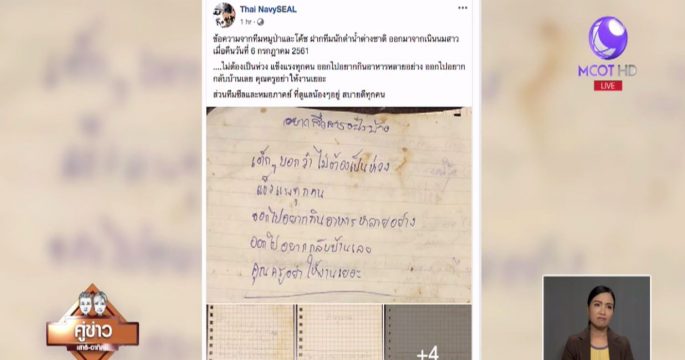 Thai NavySEAL
1 hr
ข้อความจากทีมหมูป่าและโค้ช ฝากทีมนักดำน้ำต่างชาติ ออกมาจากเนินนมสาว
เมื่อคืนวันที่ 6 กรกฎาคม 2561
....ไม่ต้องเป็นห่วง แข็งแรงทุกคน ออกไปอยากกินอาหารหลายอย่าง ออกไปอยาก
กลับบ้านเลย คุณครูอย่าให้งานเยอะ
ส่วนทีมซีลและหมอภาคย์ ที่ดูแลน้องๆอยู่ สบายดีทุกคน
MCOT HD
LIVE
อยากสื่อสารอะไรบ้าง
เด็กๆ บอกว่า ไม่ต้องเป็นห่วง
แข็งแรงทุกคน
ออกไปอยากกินอาหารหลายอย่าง
ออกไปอยากกลับบ้านเลย
คุณครูอย่าให้งานเยอะ
+4
คู่ข่าว
เสาร์-อาทิตย์